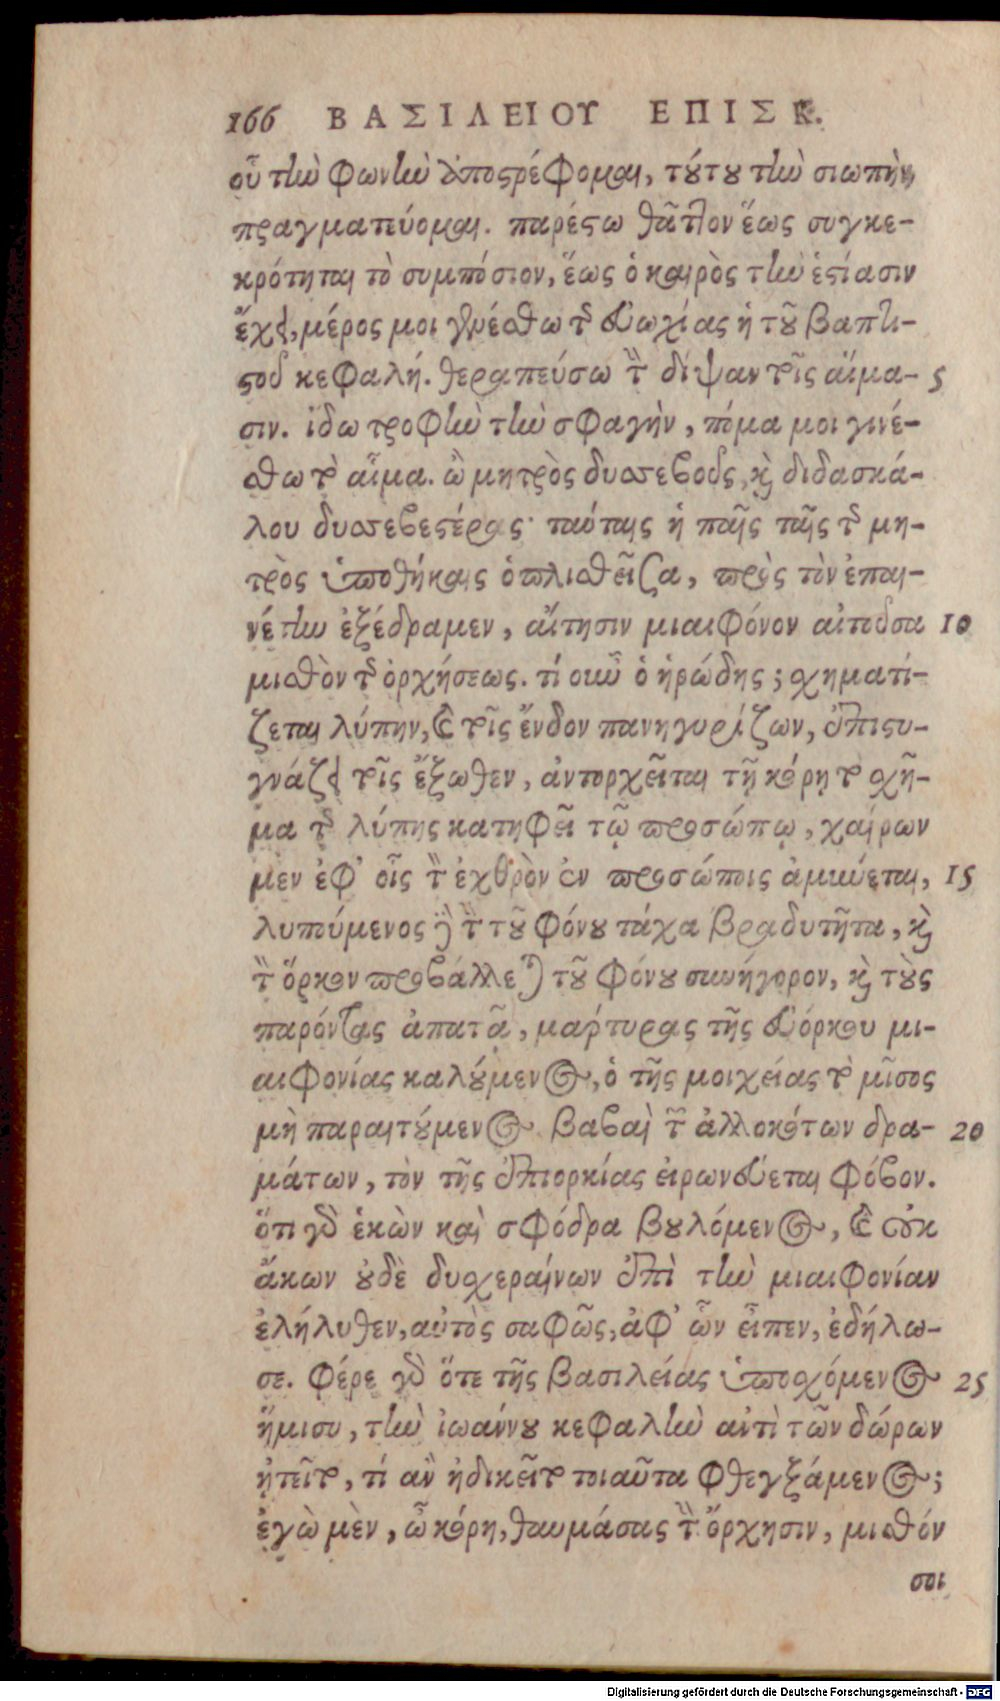 166 ΒΑΣΙΛΕΙΟΥ ΕΠΙΣΚ.
οὗ τὴν φωνὴν ἀποστρέφομαι, τούτου τὴν σιωπὴν
πραγματεύομαι. παρέστω θᾶττον ἕως συγκε-
κρότηται τὸ συμπόσιον, ἕως ὁ καιρὸς τὴν ἑστίασιν
ἔχει, μέρος μοι γενέσθω τῆς εὐωχίας ἡ τοῦ βαπτι-
στοῦ κεφαλή. θεραπεύσω τὴν δίψαν τοῖς αἵμα- 5
σιν. ἴδω τροφὴν τὴν σφαγὴν, πόμα μοι γινέ-
σθω τὸ αἷμα. ὢ μητρὸς δυσσεβοῦς, καὶ διδασκά-
λου δυσσεβεστέρας· ταύταις ἡ παῖς ταῖς τῆς μη-
τρὸς ὑποθήκαις ὁπλισθεῖσα, πρὸς τὸν ἐπαι-
νέτην ἐξέδραμεν, αἴτησιν μιαιφόνον αἰτοῦσα 10
μισθὸν τῆς ὀρχήσεως. τί οὖν ὁ ἡρώδης; σχηματί-
ζεται λύπην, καὶ τοῖς ἔνδον πανηγυρίζων, ἐπιστυ-
γνάζει τοῖς ἔξωθεν, ἀντορχεῖται τῇ κόρῃ τὸ σχῆ-
μα τῆς λύπης κατηφεῖ τῷ προσώπῳ, χαίρων
μεν ἐφ' οἷς τὸν ἐχθρὸν ἐν προσώποις ἀμύνεται, 15
λυπούμενος δὲ τὴν τοῦ φόνου τάχα βραδυτῆτα, καὶ
τὸν ὅρκον προβάλλεται τοῦ φόνου συνήγορον, καὶ τοὺς
παρόντας ἀπατᾷ, μάρτυρας τῆς εὐόρκου μι-
αιφονίας καλούμενος, ὁ τῆς μοιχείας τὸ μῖσος
μὴ παραιτούμενος. βαβαὶ τῶν ἀλλοκότων δρα- 20
μάτων, τὸν τῆς ἐπιορκίας εἰρωνεύεται φόβον.
ὅτι γὰρ ἑκὼν καὶ σφόδρα βουλόμενος, καὶ οὐκ
ἄκων οὐδὲ δυσχεραίνων ἐπὶ τὴν μιαιφονίαν
ἐλήλυθεν, αὐτὸς σαφῶς, ἀφ' ὧν εἶπεν, ἐδήλω-
σε. φέρε γὰρ ὅτε τῆς βασιλείας ὑποσχόμενος 25
ἥμισυ, τὴν ἰωάννου κεφαλὴν ἀντὶ τῶν δώρων
ᾐτεῖτο, τί ἂν ἠδικεῖτο τοιαῦτα φθεγξάμενος;
ἐγὼ μὲν, ὦ κόρη, θαυμάσας τὴν ὄρχησιν, μισθόν
σοι
Digitalisierung gefördert durch die Deutsche Forschungsgemeinschaft - DFG